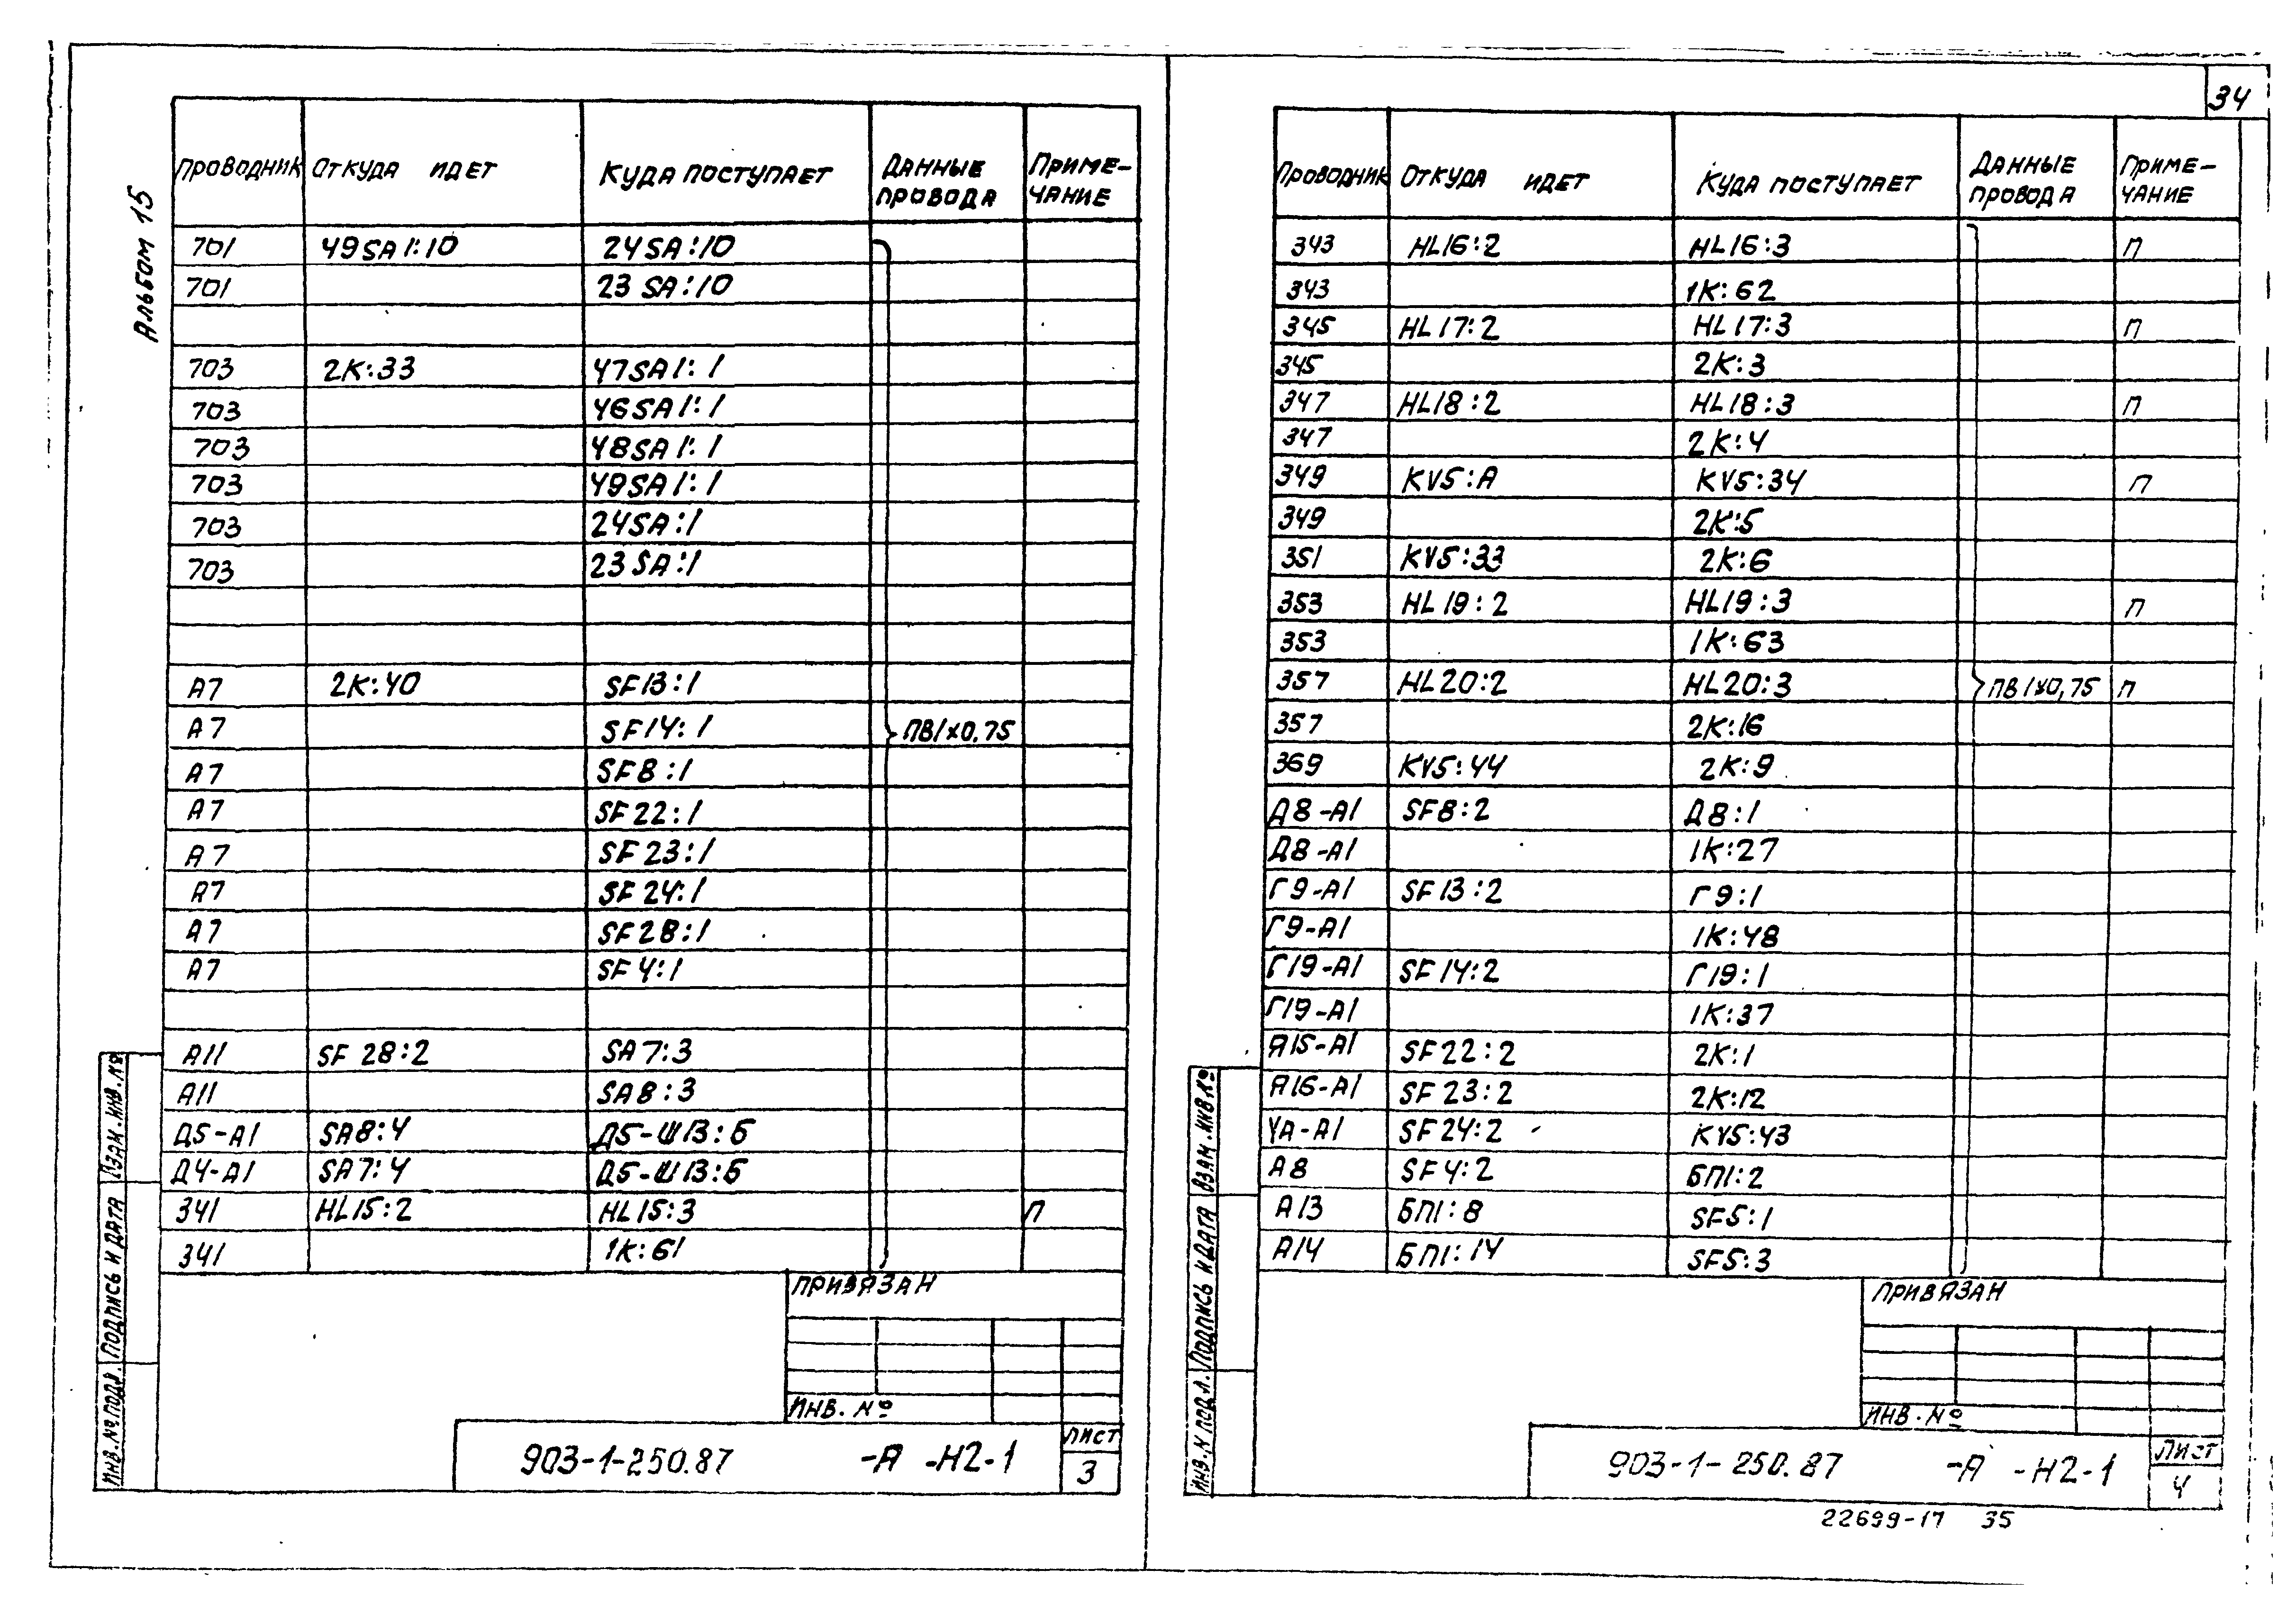 34
Альбом 15
Проводник Откуда идет Куда поступает Данные провода Примечание
701 49SA1:10 24SA:10
701 23SA:10
703 2К:33 47SA1:1
703 46SA1:1
703 48SA1:1
703 49SA1:1
703 24SA:1
703 23SA:1
А7 2К:40 SF13:1
А7 SF14:1 ПВ1х0.75
А7 SF8:1
А7 SF22:1
А7 SF23:1
А7 SF24:1
А7 SF28:1
А7 SF4:1
А11 SF28:2 SA7:3
А11 SA8:3
Д5-А1 SA8:4 Д5-Ш13:Б
Д4-А1 SA7:4 Д5-Ш13:Б
341 HL15:2 HL15:3 П
341 1К:61
Привязан
Инв. №
903-1-250.87 -А -Н2-1
Лист
3
Инв. № подл. Подпись и дата Взам. инв. №
Проводник Откуда идет Куда поступает Данные провода Примечание
343 HL16:2 HL16:3 П
343 1К:62
345 HL17:2 HL17:3 П
345 2К:3
347 HL18:2 HL18:3 П
347 2К:4
349 KV5:А KV5:34 П
349 2К:5
351 KV5:33 2К:6
353 HL19:2 HL19:3 П
353 1К:63
357 HL20:2 HL20:3 ПВ1х0,75 П
357 2К:16
369 KV5:44 2К:9
Д8-А1 SF8:2 Д8:1
Д8-А1 1К:27
Г9-А1 SF13:2 Г9:1
Г9-А1 1К:48
Г19-А1 SF14:2 Г19:1
Г19-А1 1К:37
А15-А1 SF22:2 2К:1
А16-А1 SF23:2 2К:12
УА-А1 SF24:2 KV5:43
А8 SF4:2 БП1:2
А13 БП1:8 SF5:1
А14 БП1:14 SF5:3
Привязан
Инв. №
903-1-250.87 -А -Н2-1
Лист
4
Инв. № подл. Подпись и дата Взам. инв №
22699-17 35